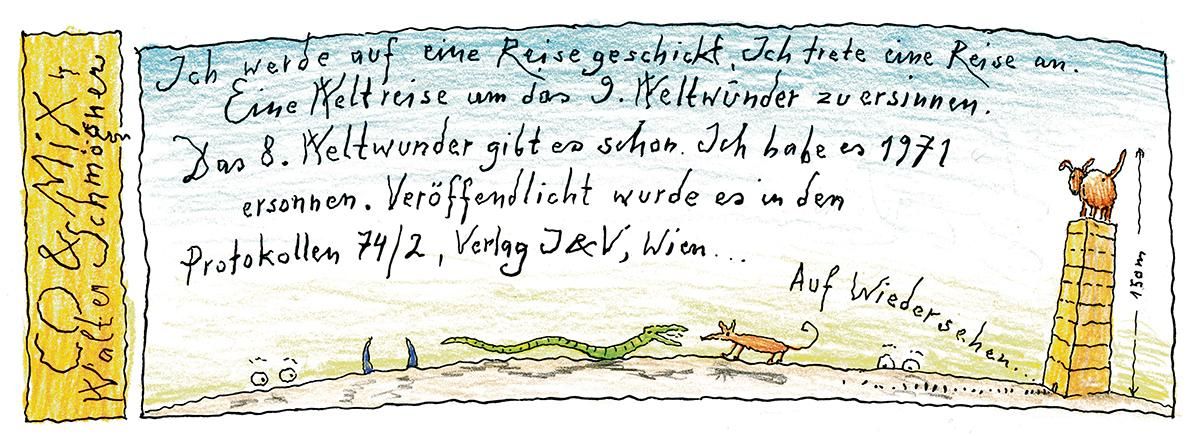 CO & MIX 4
Walter Schmögner
Ich werde auf eine Reise geschickt, Ich trete eine Reise an.
Eine Weltreise um das 9. Weltwunder zu ersinnen.
Das 8. Weltwunder gibt es schon. Ich habe es 1971
ersonnen. Veröffendlicht wurde es in den
Protokollen 74/2, Verlag J&V, Wien...
Auf Wiedersehen...
150m